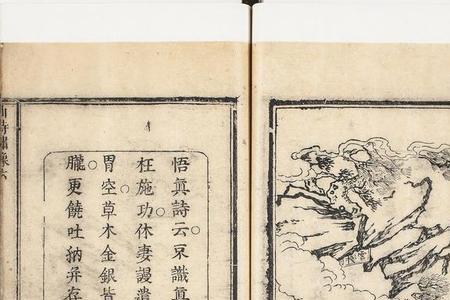 悟真詩云不識真
枉施功休妻謾遣
胃空草木金銀皆
朧更饒吐納并存